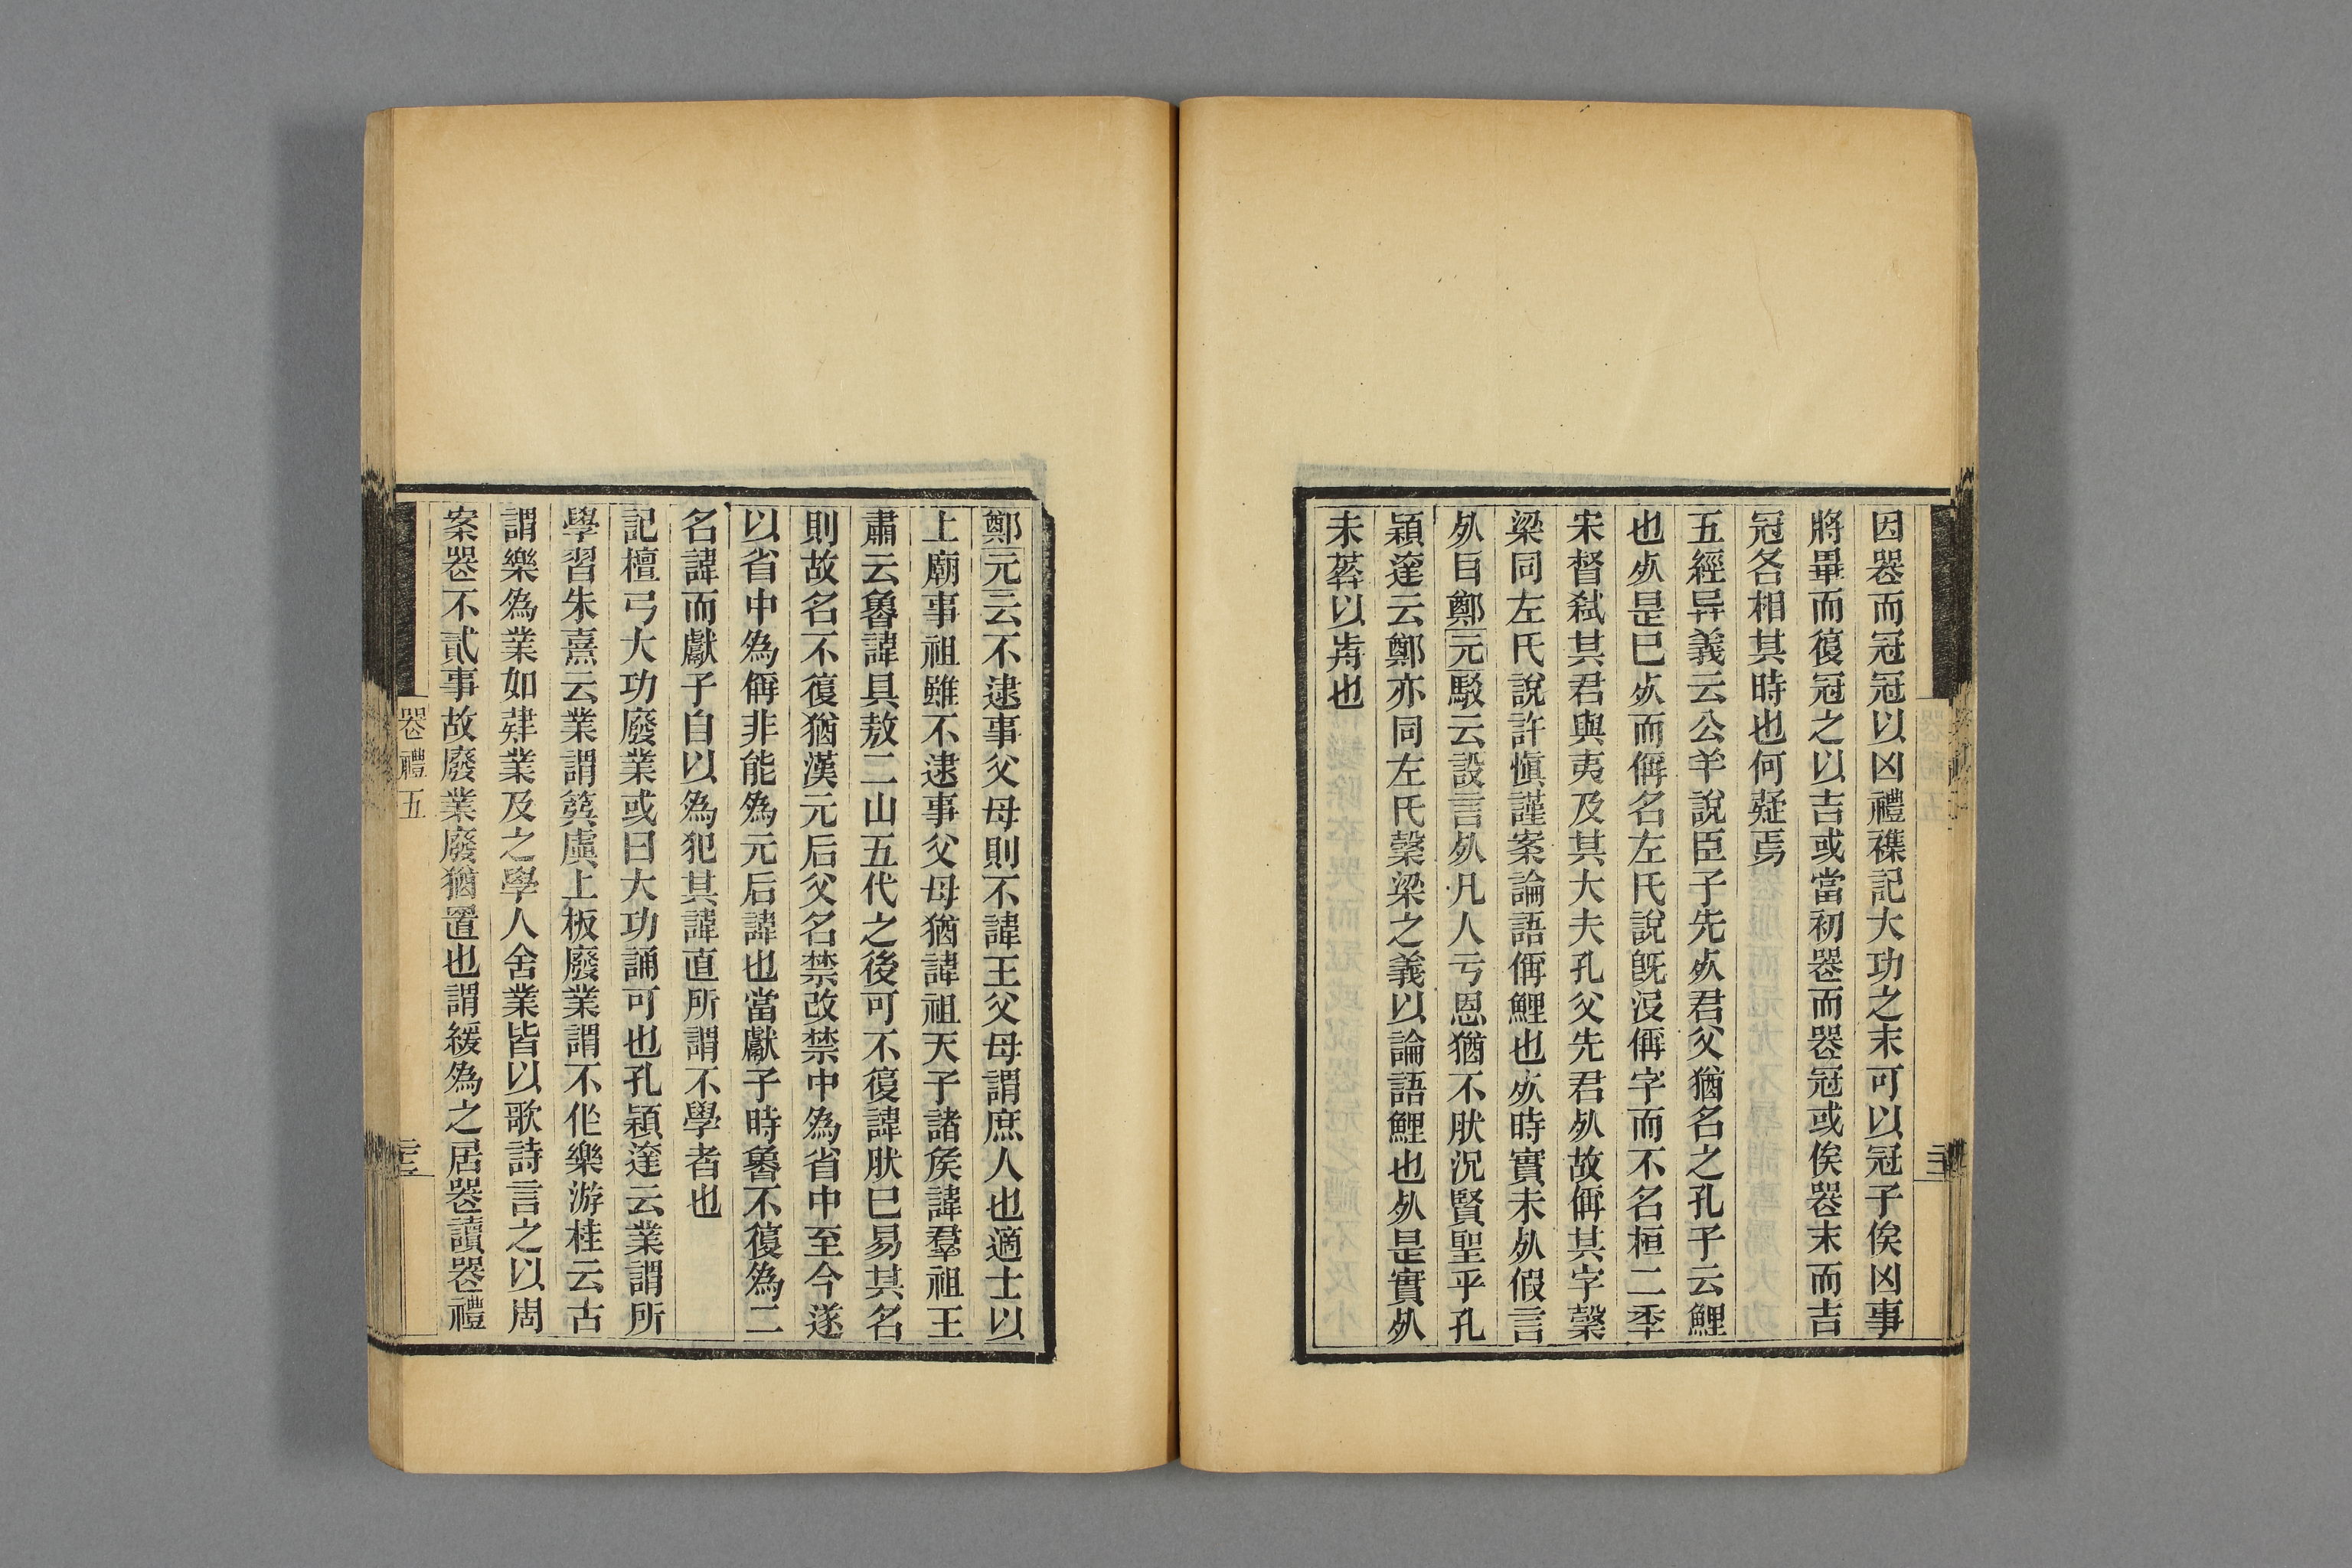 因器而冠冠以凶禮襍記大功之末可以冠子俟凶事
將畢而復冠之以吉或當初器而器冠或俟器末而吉
冠各相其時也何疑焉
五經异義云公羊說臣子先𣦸君父猶名之孔子云鯉
也𣦸是巳𣦸而偁名左氏說旣沒偁字而不名桓二秊
宋督弒其君與夷及其大夫孔父先君𣦸故偁其字穀
梁同左氏說許愼謹案論語偁鯉也𣦸時實未𣦸假言
𣦸目鄭元駁云設言𣦸凡人亏恩猶不肰況賢聖乎孔
穎達云鄭亦同左氏穀梁之義以論語鯉也𣦸是實𣦸
未葬以歬也
鄭元云不逮事父母則不諱王父母謂庶人也適士以
上廟事祖雖不逮事父母猶諱祖天子諸矦諱羣祖王
肅云魯諱具敖二山五代之後可不復諱肰巳易其名
則故名不復猶漢元后父名禁改禁中為省中至今遂
以省中為偁非能為元后諱也當獻子時魯不復為二
名諱而獻子自以為犯其諱直所謂不學者也
記檀弓大功廢業或曰大功誦可也孔穎達云業謂所
學習朱熹云業謂簨虡上板廢業謂不作樂游桂云古
謂樂為業如肄業及之學人舍業皆以歌詩言之以周
案器不貳事故廢業廢猶置也謂緩為之居器讀器禮
器禮五